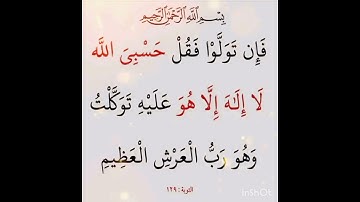 بِسْمِ اللَّهِ الرَّحْمَٰنِ الرَّحِيمِ
فَإِن تَوَلَّوْا فَقُلْ حَسْبِيَ اللَّه
لَا إِلَٰهَ إِلَّا هُوَ عَلَيْهِ تَوَكَّلْتُ
وَهُوَ رَبُّ الْعَرْشِ الْعَظِيمِ
التوبة : ١٢٩
InShOt